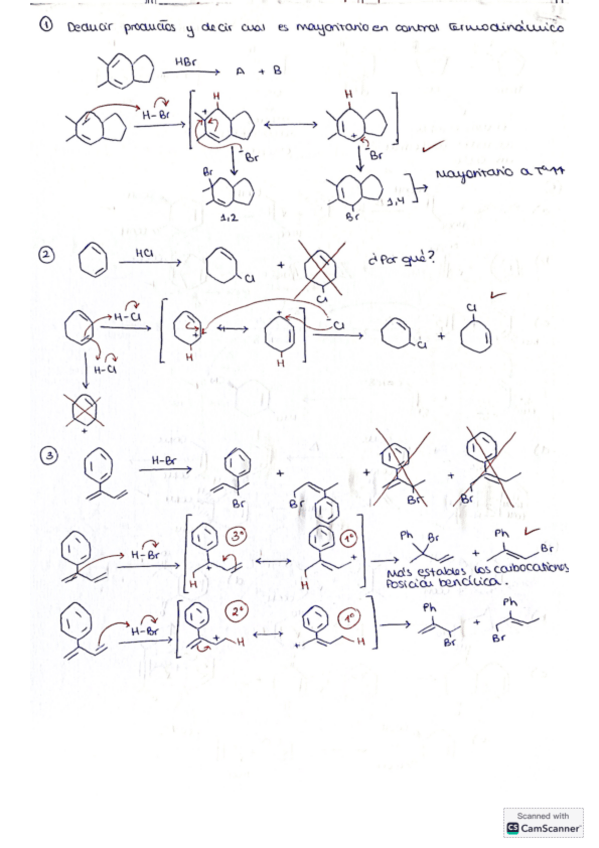 ① Deducir productos y decir cual es mayoritario en control termodinámico
HBr
A + B
H H
H-Br
+ +
-Br -Br
Br
1,2
Br
1,4
Mayoritario a Tª ↑↑
② HCl
Cl + Cl ¿Por qué?
H-Cl
H-Cl
+ +
H H
-Cl
Cl + Cl
+
③ H-Br
Br + Br + Br + Br
H-Br
3º 1º
+ +
H H
Ph Br Ph
+ Br
Más estables los carbocationes
Posición bencílica.
H-Br
2º 1º
+ H + H
Ph Ph
Br + Br
Scanned with
CS CamScanner